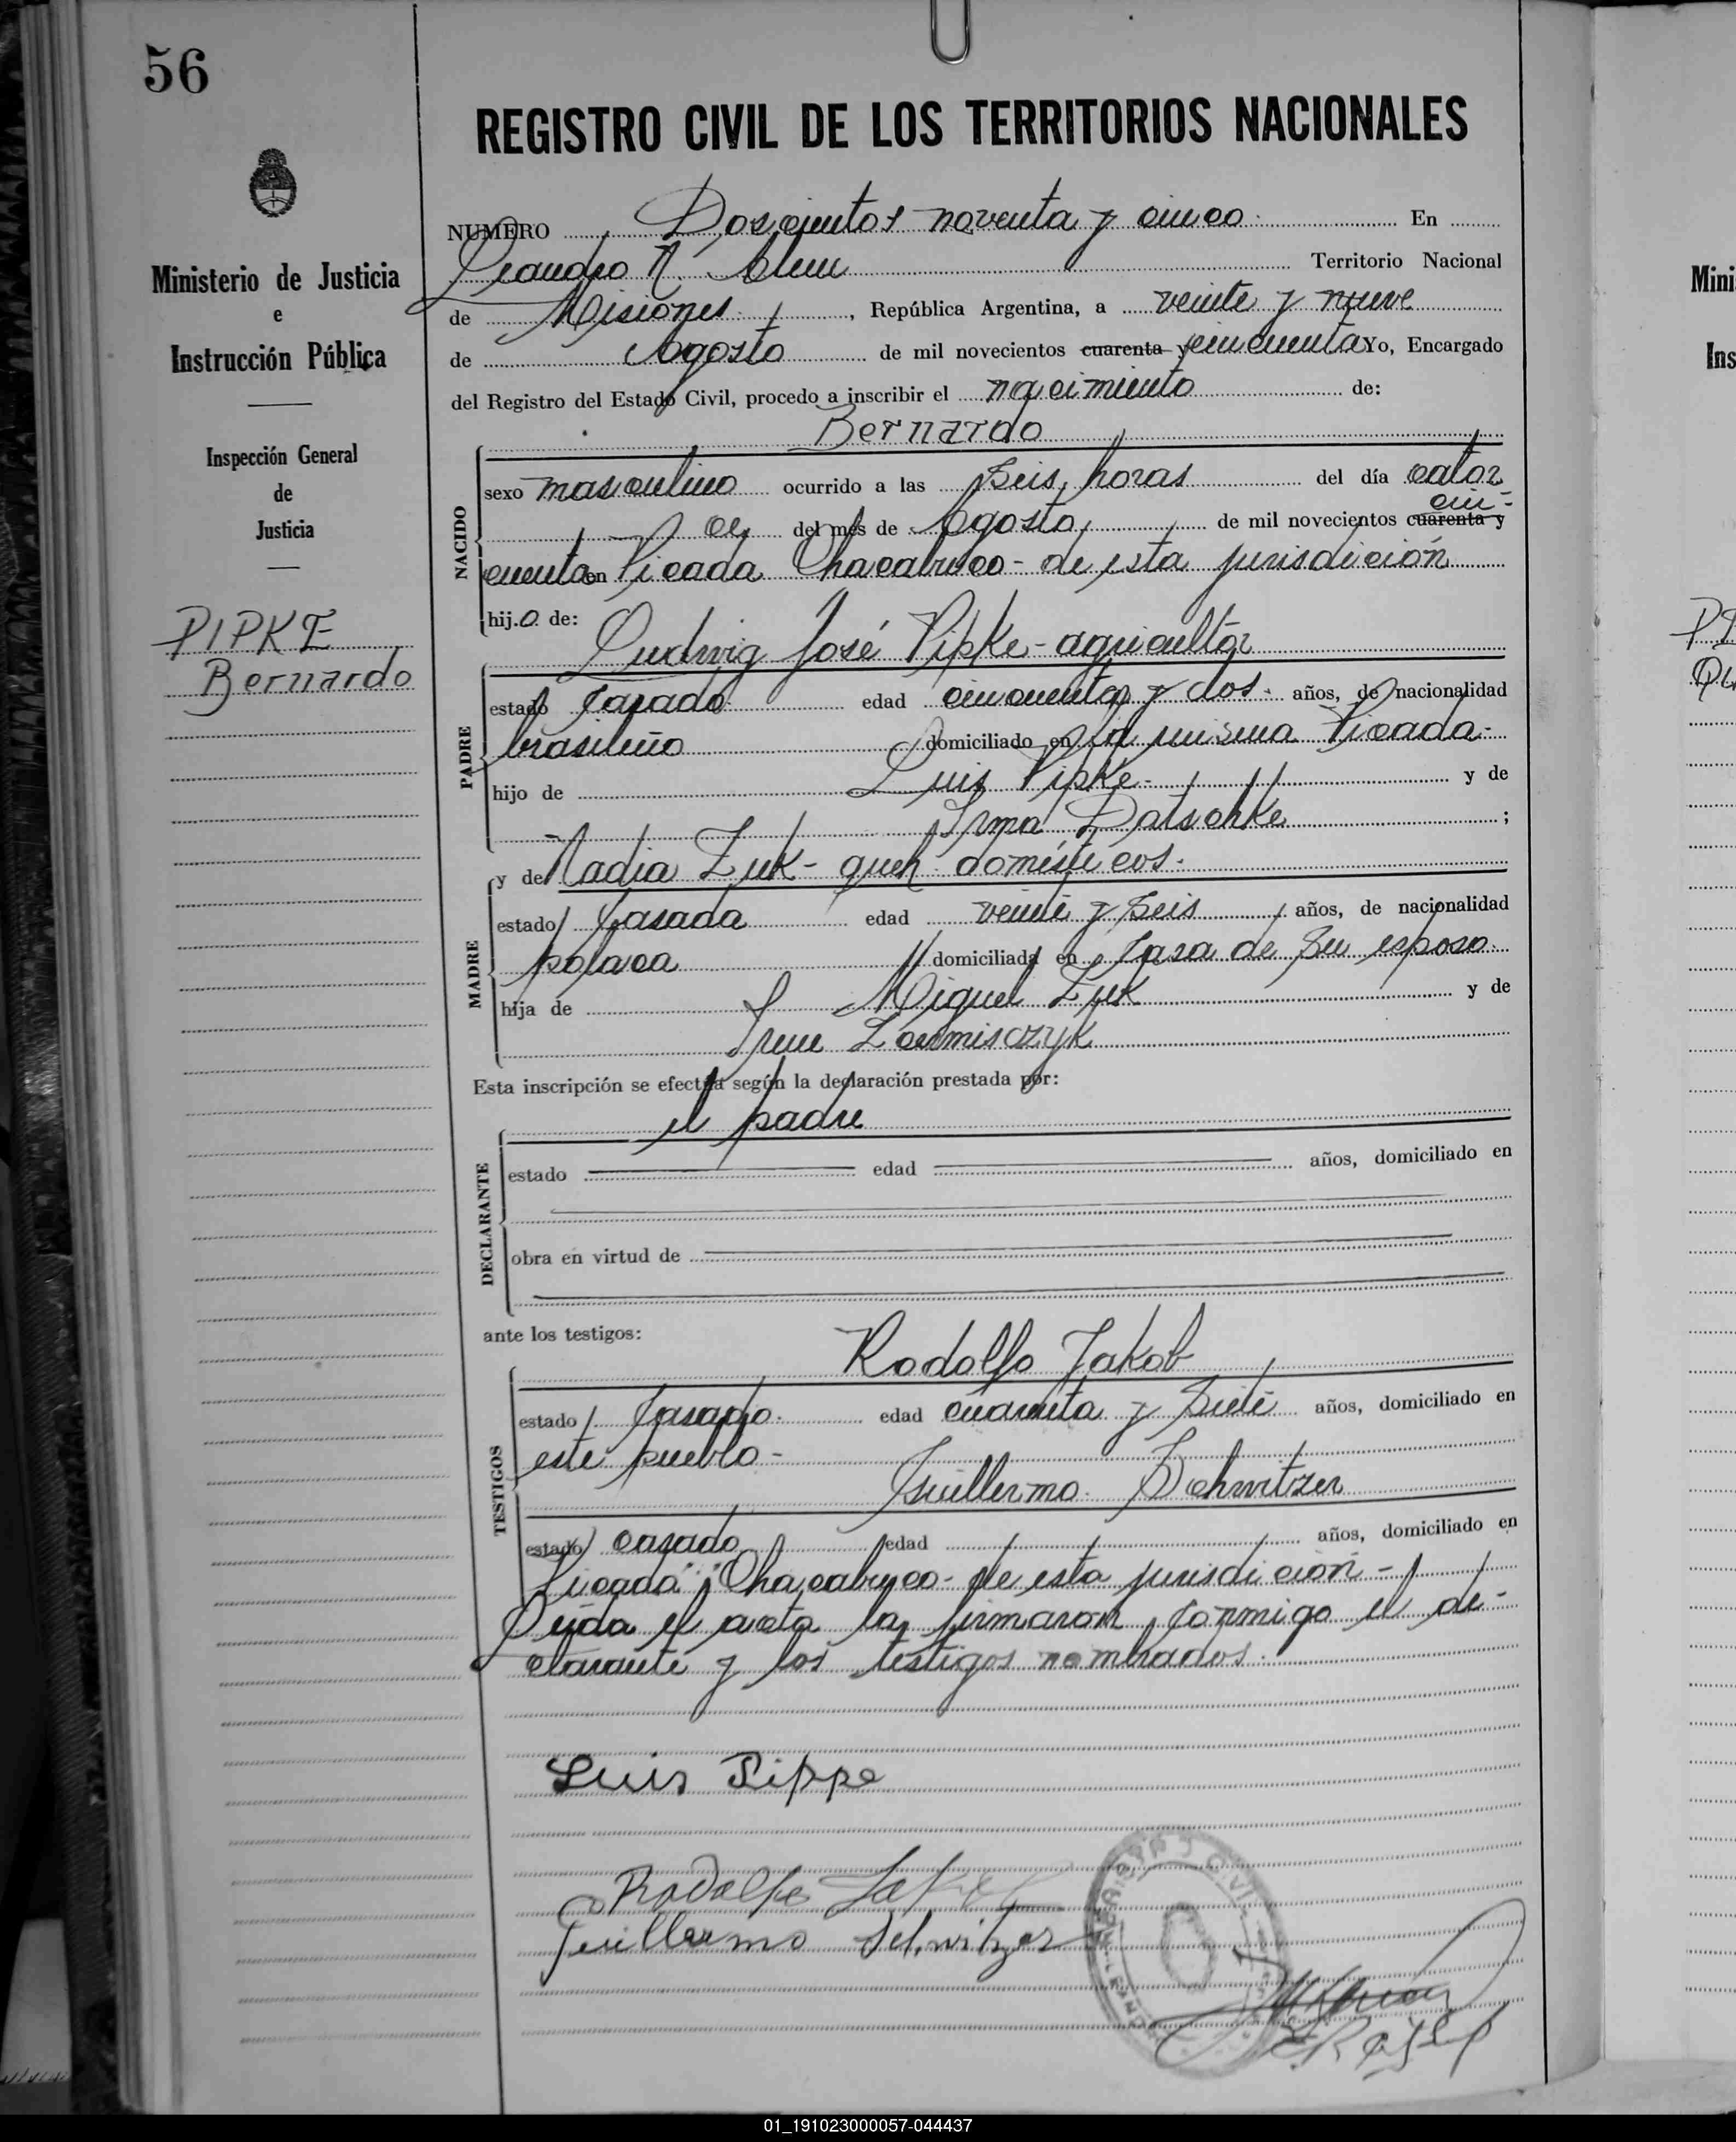 56
REGISTRO CIVIL DE LOS TERRITORIOS NACIONALES
Ministerio de Justicia
e
Instrucción Pública
Inspección General
de
Justicia
PIPKE
Bernardo
NUMERO Doscientos noventa y cinco En
Leandro N. Alem Territorio Nacional
de Misiones, República Argentina, a veinte y nueve
de Agosto de mil novecientos cuarenta y cincuenta Yo, Encargado
del Registro del Estado Civil, procedo a inscribir el nacimiento de:
Bernardo
NACIDO
sexo masculino ocurrido a las seis horas del día cator
ce del mes de Agosto de mil novecientos cuarenta y cin-
cuenta en Picada Chacabuco - de esta jurisdición
hijo de:
Ludwig José Pipke - agricultor
PADRE
estado casado edad cincuenta y dos años, de nacionalidad
brasileño domiciliado en la misma Picada -
hijo de Luis Pipke y de
Irma Datschke ;
y de Nadia Zuk - queh. domésticos.
MADRE
estado casada edad veinte y seis años, de nacionalidad
polaca domiciliada en casa de su esposo
hija de Miguel Zuk y de
Irene
Esta inscripción se efectúa según la declaración prestada por:
el padre
DECLARANTE
estado edad años, domiciliado en
obra en virtud de
ante los testigos:
Rodolfo Jakob
TESTIGOS
estado casado edad cuarenta y siete años, domiciliado en
este pueblo -
Guillermo Schwitzer
estado casado edad años, domiciliado en
Picada "Chacabuco - de esta jurisdición -
Leída el acta la firmaron conmigo el de-
clarante y los testigos nombrados.
Luis Pippe
Rodolfo
Guillermo Schwitzer
01_191023000057-044437